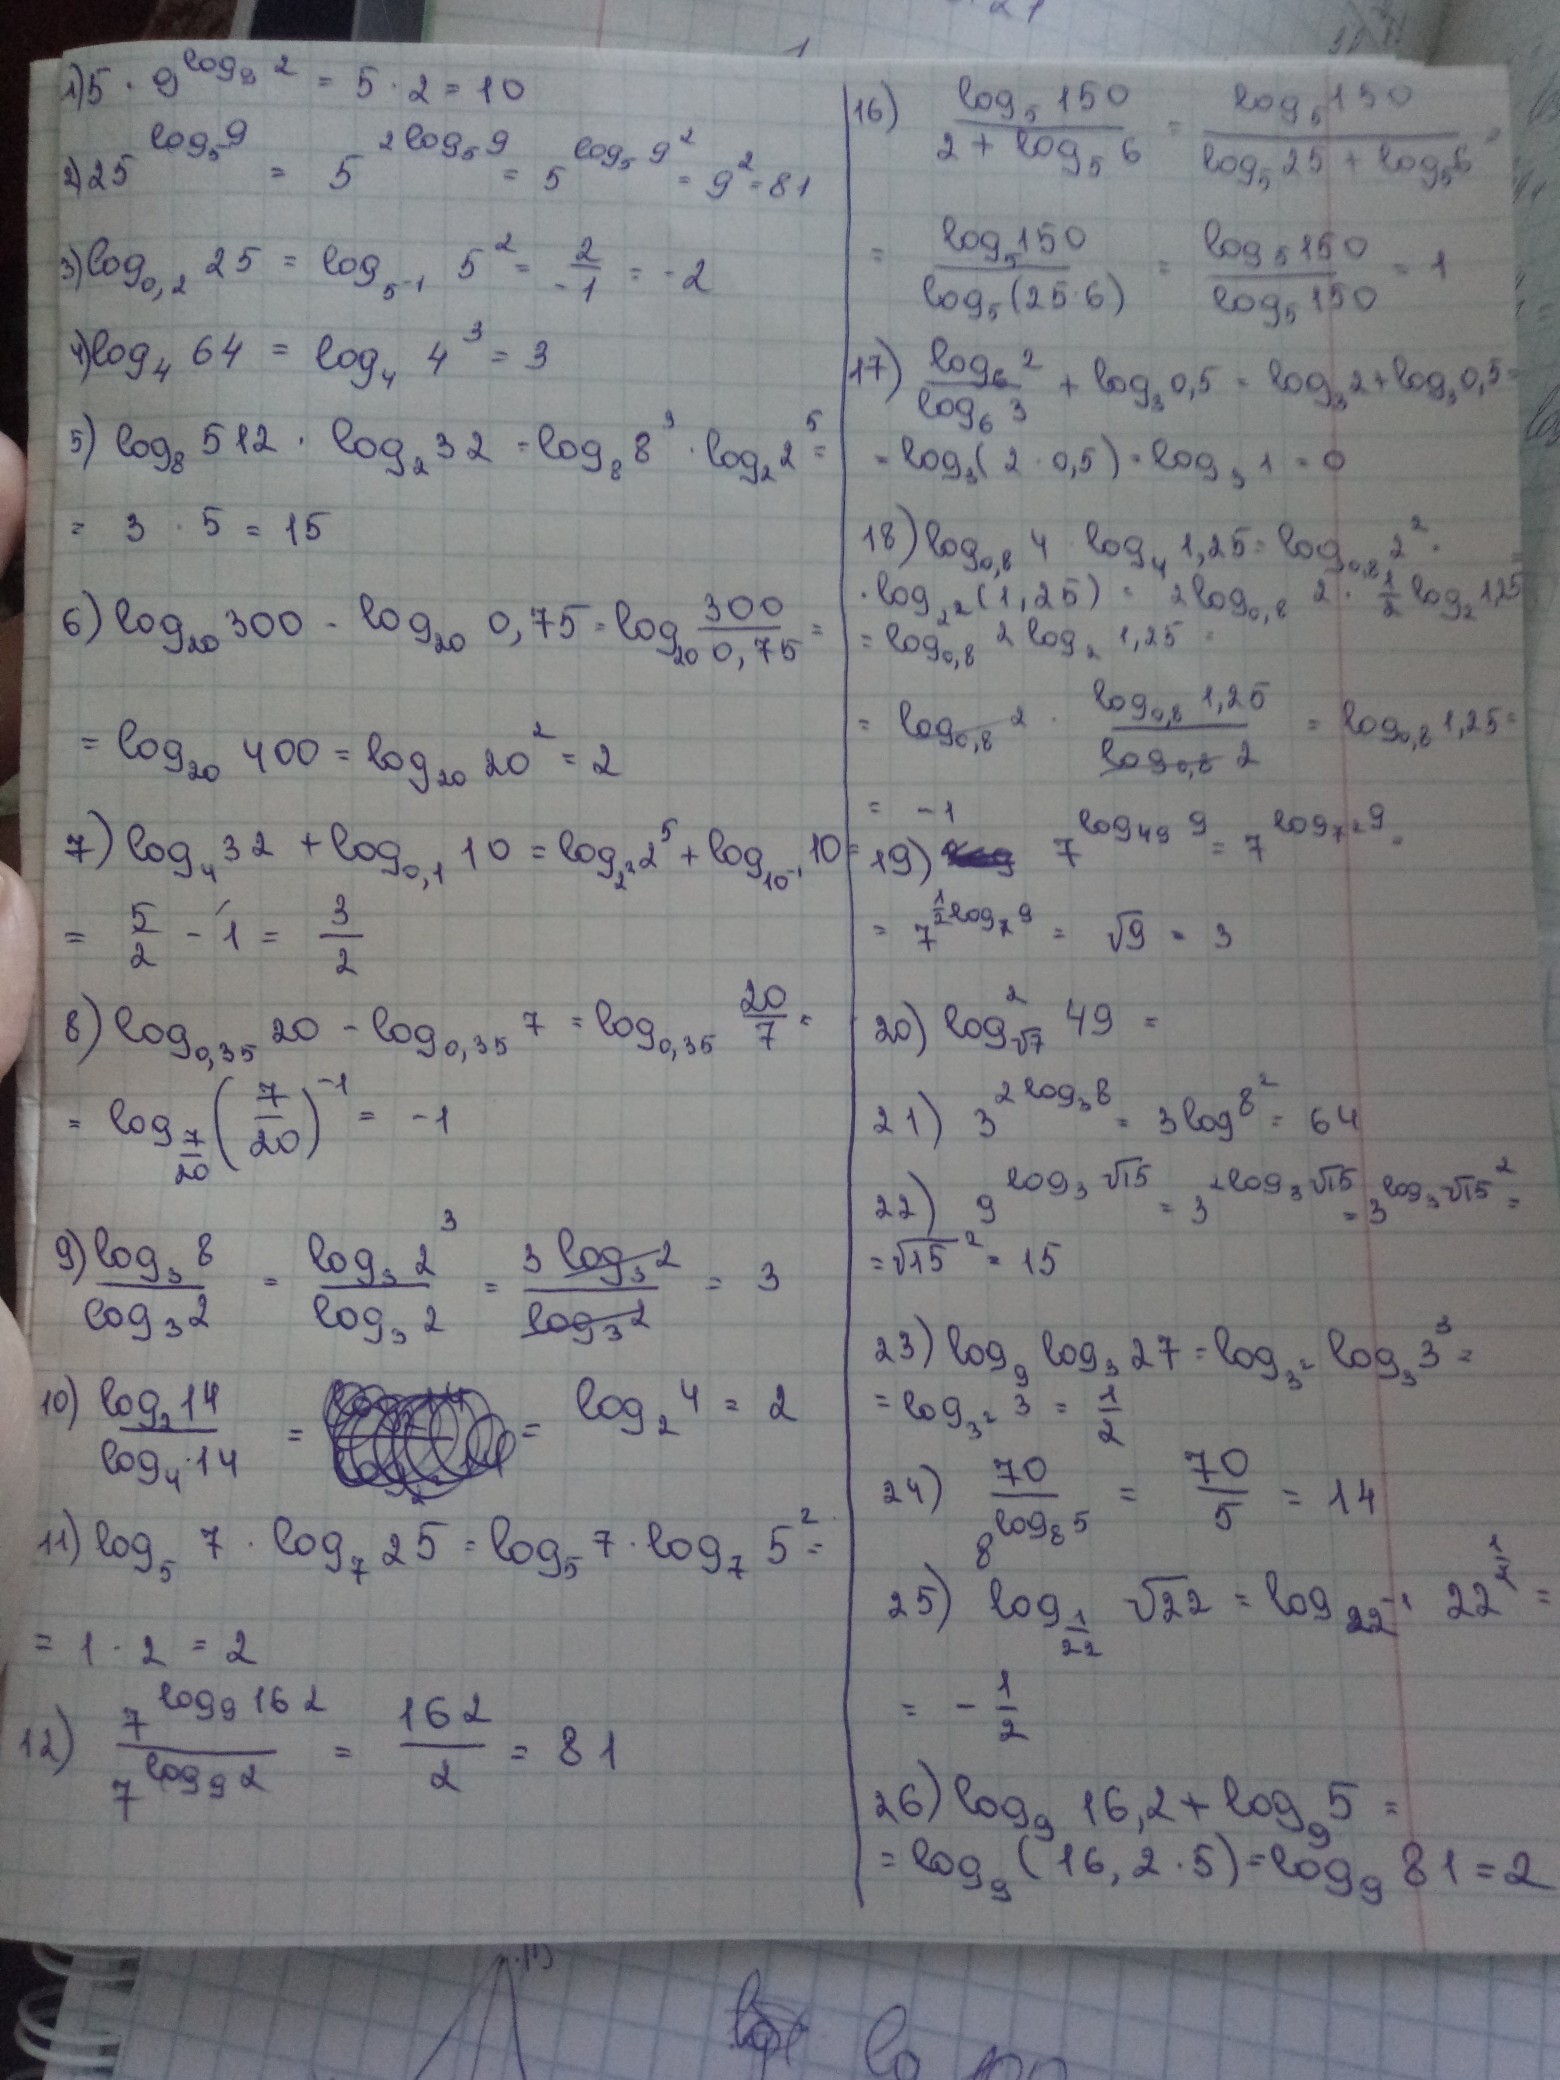 1) 5 · 9^{log_9 2} = 5 · 2 = 10
2) 25^{log_5 9} = 5^{2 log_5 9} = 5^{log_5 9^2} = 9^2 = 81
3) log_{0,2} 25 = log_{5^{-1}} 5^2 = \frac{2}{-1} = -2
4) log_4 64 = log_4 4^3 = 3
5) log_8 512 · log_2 32 = log_8 8^3 · log_2 2^5 =
= 3 · 5 = 15
6) log_{20} 300 - log_{20} 0,75 = log_{20} \frac{300}{0,75} =
= log_{20} 400 = log_{20} 20^2 = 2
7) log_4 32 + log_{0,1} 10 = log_{2^2} 2^5 + log_{10^{-1}} 10 =
= \frac{5}{2} - 1 = \frac{3}{2}
8) log_{0,35} 20 - log_{0,35} 7 = log_{0,35} \frac{20}{7} =
= log_{\frac{7}{20}} (\frac{7}{20})^{-1} = -1
9) \frac{log_3 8}{log_3 2} = \frac{log_3 2^3}{log_3 2} = \frac{3 log_3 2}{log_3 2} = 3
10) \frac{log_2 14}{log_4 14} = = log_2 4 = 2
11) log_5 7 · log_7 25 = log_5 7 · log_7 5^2 =
= 1 · 2 = 2
12) \frac{7^{log_9 162}}{7^{log_9 2}} = \frac{162}{2} = 81
16) \frac{log_5 150}{2 + log_5 6} = \frac{log_5 150}{log_5 25 + log_5 6} =
= \frac{log_5 150}{log_5 (25·6)} = \frac{log_5 150}{log_5 150} = 1
17) \frac{log_6 2}{log_6 3} + log_3 0,5 = log_3 2 + log_3 0,5 =
= log_3 (2 · 0,5) = log_3 1 = 0
18) log_{0,8} 4 · log_4 1,25 = log_{0,8} 2^2 ·
· log_{2^2} (1,25) = 2 log_{0,8} 2 · \frac{1}{2} log_2 1,25
= log_{0,8} 2 log_2 1,25 =
= log_{0,8} 2 · \frac{log_{0,8} 1,25}{log_{0,8} 2} = log_{0,8} 1,25 =
= -1
19) 7^{log_{49} 9} = 7^{log_{7^2} 9} =
= 7^{\frac{1}{2} log_7 9} = √9 = 3
20) log^2_{√7} 49 =
21) 3^{2 log_3 8} = 3 log 8^2 = 64
22) 9^{log_3 √15} = 3^{2 log_3 √15} = 3^{log_3 √15^2} =
= √15^2 = 15
23) log_9 log_3 27 = log_{3^2} log_3 3^3 =
= log_{3^2} 3 = \frac{1}{2}
24) \frac{70}{8^{log_8 5}} = \frac{70}{5} = 14
25) log_{\frac{1}{22}} √22 = log_{22^{-1}} 22^{\frac{1}{2}} =
= - \frac{1}{2}
26) log_9 16,2 + log_9 5 =
= log_9 (16,2 · 5) = log_9 81 = 2